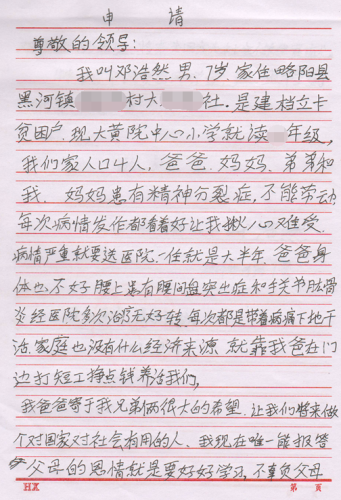 申 请
尊敬的领导：
我叫邓浩然男、7岁、家住略阳县
黑河镇 村大 社. 是建档立卡
贫困户. 现大黄院中心小学就读 年级,
我们家人口4人, 爸爸、妈妈、弟弟和
我、妈妈患有精神分裂症,不能劳动
每次病情发作都看着好让我揪心又难受.
病情严重就要送医院.一住就是大半年. 爸爸身
体也不好腰上患有腰间盘突出症和手关节肱骨
炎经医院多次治疗无好转. 每次都是带着病痛下地干
活. 家庭也没有什么经济来源 就靠我爸在门
边打短工挣点钱养活我们,
我爸爸寄于我兄弟俩很大的希望. 让我们将来做
个对国家对社会有用的人、我现在唯一能报答
父母的恩情就是要好好学习,不辜负父母
HX 第 页